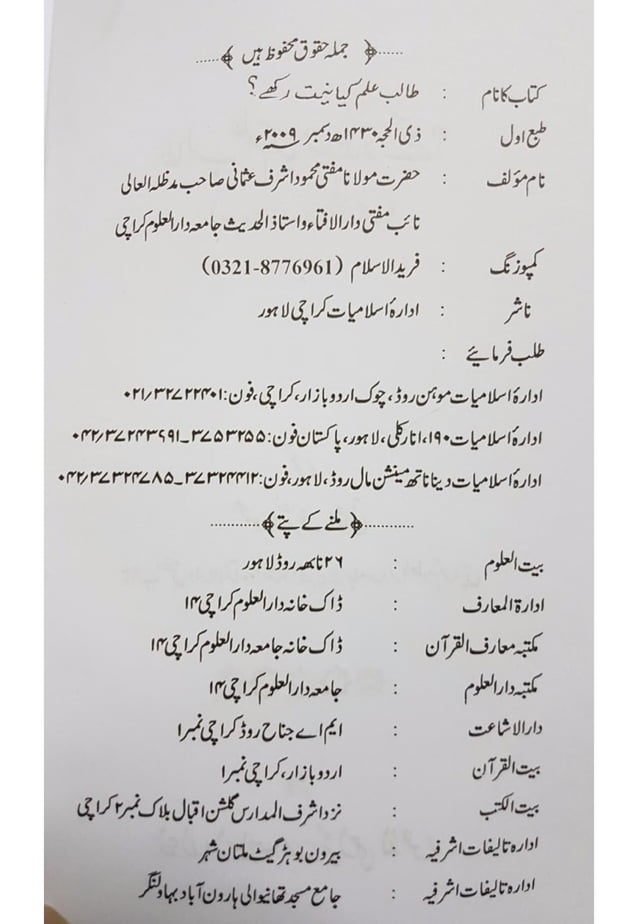 ......﴿ جملہ حقوق محفوظ ہیں ﴾......
کتاب کا نام : طالب علم کیا نیت رکھے؟
طبع اول : ذی الحجہ ۱۴۳۰ھ دسمبر ۲۰۰۹ء
نام مؤلف : حضرت مولانا مفتی محمود اشرف عثمانی صاحب مدظلہ العالی
نائب مفتی دارالافتاء و استاذ الحدیث جامعہ دارالعلوم کراچی
کمپوزنگ : فرید الاسلام (0321-8776961)
ناشر : ادارۂ اسلامیات کراچی لاہور
طلب فرمائیے :
ادارۂ اسلامیات موہن روڈ، چوک اردو بازار، کراچی، فون: ۰۲۱/۳۲۷۲۲۴۰۱
ادارۂ اسلامیات ۱۹۰، انارکلی، لاہور، پاکستان فون: ۳۷۵۳۲۵۵۔۰۴۲/۳۷۲۴۳۹۹۱
ادارۂ اسلامیات دینا ناتھ مینشن مال روڈ، لاہور، فون: ۳۷۳۲۴۴۱۲۔۰۴۲/۳۷۳۲۴۷۸۵
............﴿ ملنے کے پتے ﴾............
بیت العلوم : ۲۶ نابھہ روڈ لاہور
ادارۃ المعارف : ڈاک خانہ دارالعلوم کراچی ۱۴
مکتبہ معارف القرآن : ڈاک خانہ جامعہ دارالعلوم کراچی ۱۴
مکتبہ دارالعلوم : جامعہ دارالعلوم کراچی ۱۴
دارالاشاعت : ایم اے جناح روڈ کراچی نمبر ۱
بیت القرآن : اردو بازار، کراچی نمبر ۱
بیت الکتب : نزد اشرف المدارس گلشن اقبال بلاک نمبر ۲ کراچی
ادارہ تالیفات اشرفیہ : بیرون بوہڑ گیٹ ملتان شہر
ادارہ تالیفات اشرفیہ : جامع مسجد تھانیوالی ہارون آباد بہاولنگر